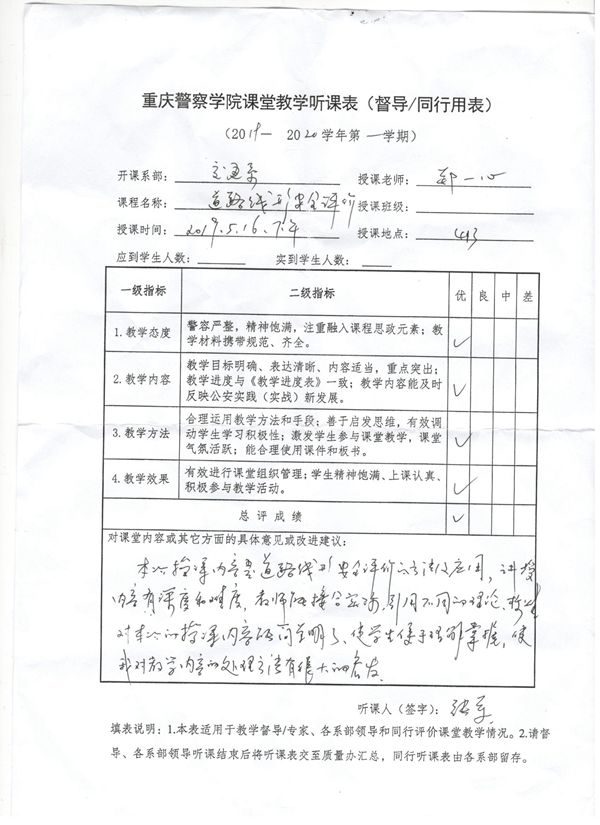 重庆警察学院课堂教学听课表（督导/同行用表）
（2019— 2020学年第一学期）
开课系部： 交通系 授课老师： 郑一心
课程名称： 道路线形安全评价 授课班级：
授课时间： 2019.5.16. 下午 授课地点：
应到学生人数： 实到学生人数：
一级指标 二级指标 优 良 中 差
1.教学态度 警容严整，精神饱满，注重融入课程思政元素；教
学材料携带规范、齐全。 ✓
2.教学内容 教学目标明确、表达清晰、内容适当，重点突出；
教学进度与《教学进度表》一致；教学内容能及时
反映公安实践（实战）新发展。 ✓
3.教学方法 合理运用教学方法和手段；善于启发思维，有效调
动学生学习积极性；激发学生参与课堂教学，课堂
气氛活跃；能合理使用课件和板书。 ✓
4.教学效果 有效进行课堂组织管理；学生精神饱满、上课认真、
积极参与教学活动。 ✓
总 评 成 绩 ✓
对课堂内容或其它方面的具体意见或改进建议：
本次授课内容是道路线形安全评价的方法及应用，讲授
内容有深度和难度，教师能结合实际，引用不同的理论，
对本次的授课内容 简单明了，使学生便于理解掌握，使
我对教学内容的处理方法有很大的启发。
听课人（签字）：
填表说明：1.本表适用于教学督导/专家、各系部领导和同行评价课堂教学情况。2.请督
导、各系部领导听课结束后将听课表交至质量办汇总，同行听课表由各系部留存。